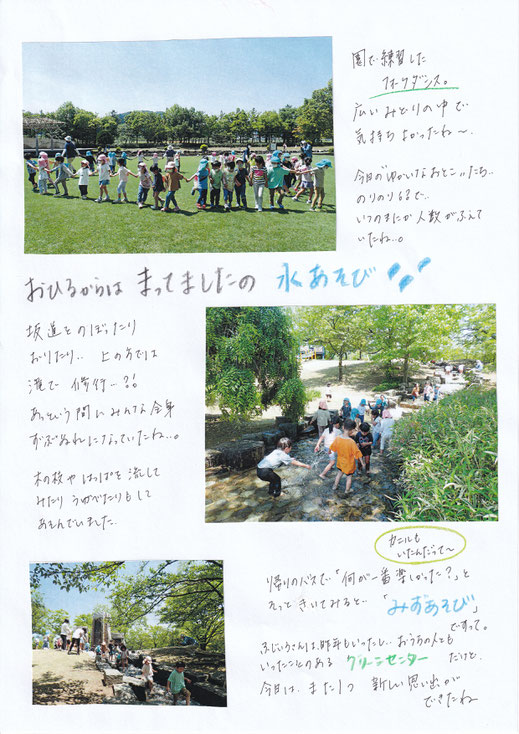 園で練習した
フォークダンス。
広いみどりの中で
気持ちよかったね〜。
今日のゆかいなおとこ''したち..
のりのりるるで..
いつのまにか人数がふえて
いたね..。
おひるからは まってましたの 水あそび
坂道とのぼったり
おりたり.. 上の方では
滝で 修行..?!
あっという間にみんな全身
ずぶぬれになっていたね..。
木の枝やはっぱを流して
みたりうかべたりもして
あそんでいました..
カニルも
いたんだって〜
帰りのバスで「何が一番楽しかった?」と
そっときいてみると..「みずあそび」
ですって。
ふじぐみさんは昨年もいったし.. おうちの人とも
いったことのある グリーンセンター だけど..
今日は、また1つ 新しい思い出が
できたね